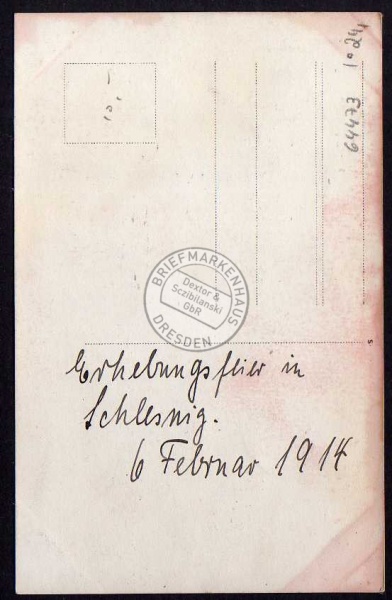 10,-
64473 10.24
BRIEFMARKENHAUS
Dextor &
Sczibilanski
GbR
DRESDEN
s
Erhebungsfeier in
Schleswig.
6 Februar 1914